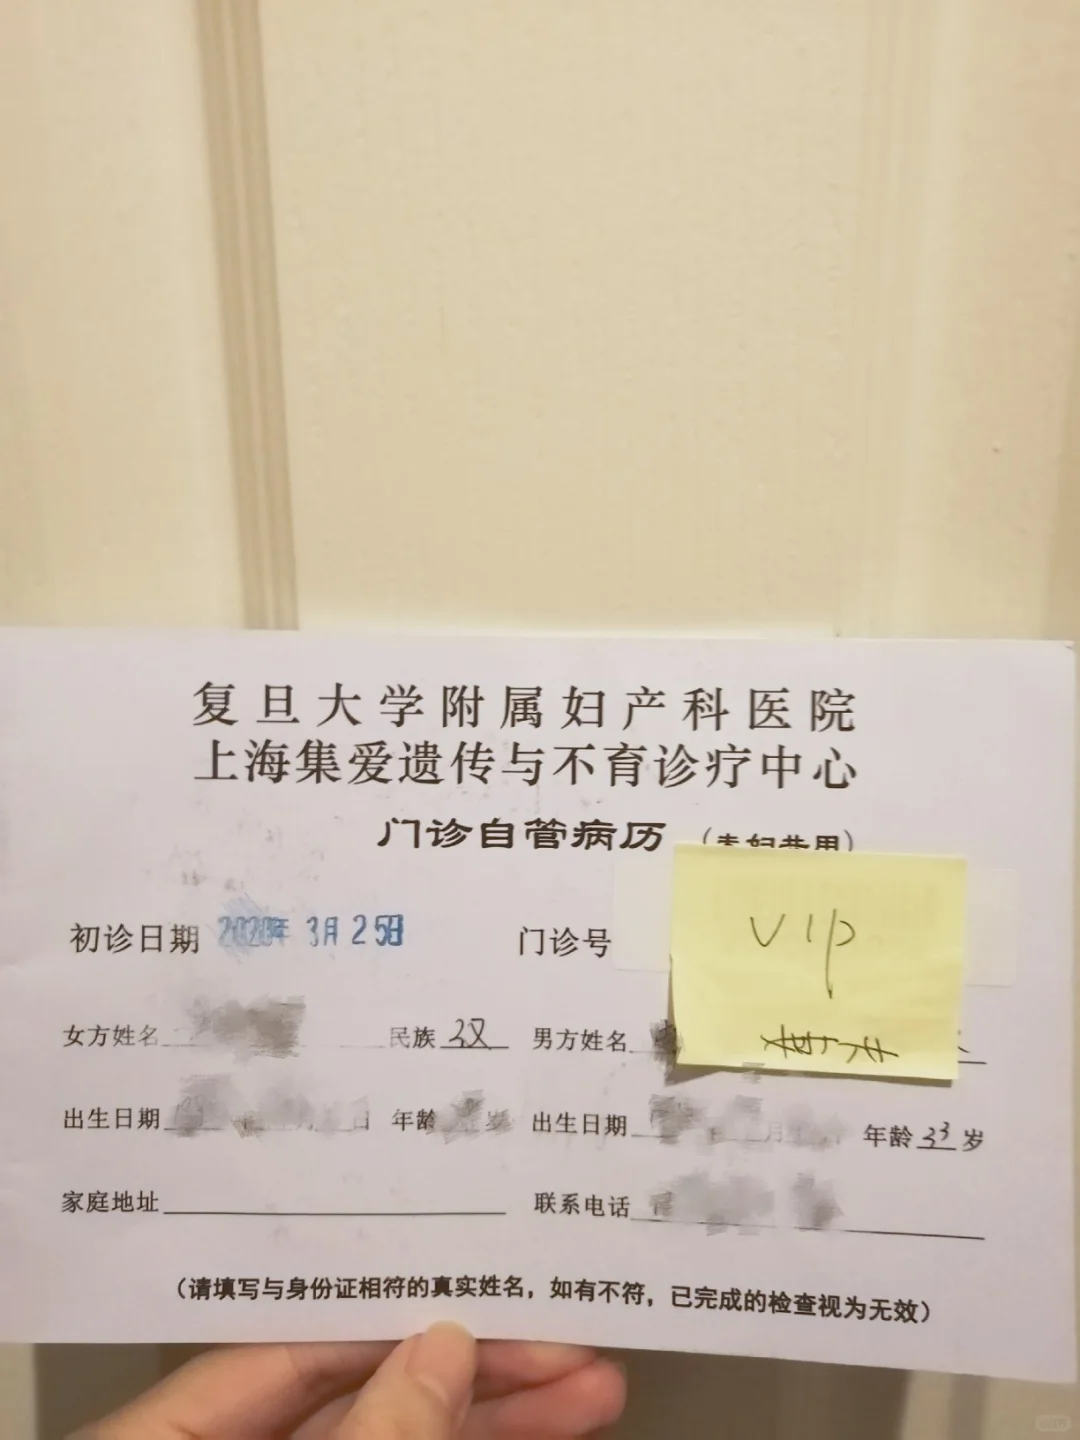 复旦大学附属妇产科医院
上海集爱遗传与不育诊疗中心
门诊自管病历
初诊日期 2020年 3月 25日 门诊号
VIP
女方姓名 民族 汉 男方姓名
出生日期 日 年龄 岁 出生日期 月 年龄 33 岁
家庭地址 联系电话
(请填写与身份证相符的真实姓名，如有不符，已完成的检查视为无效)